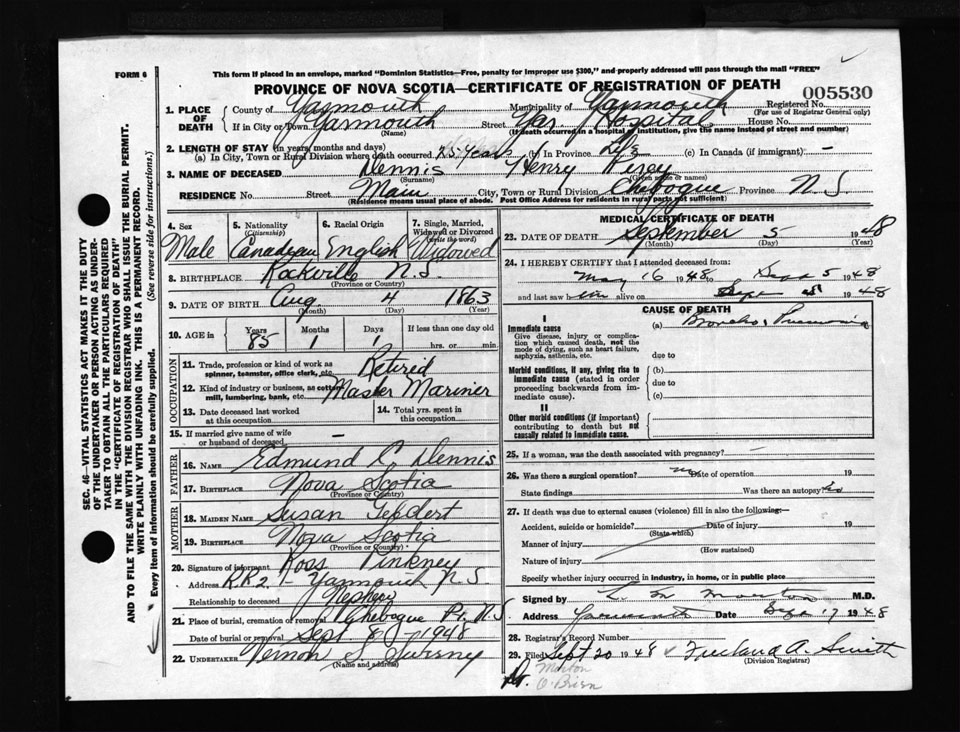 FORM 6
This form if placed in an envelope, marked "Dominion Statistics—Free, penalty for improper use $300," and properly addressed will pass through the mail "FREE"
PROVINCE OF NOVA SCOTIA—CERTIFICATE OF REGISTRATION OF DEATH
005530
1. PLACE OF DEATH County of Yarmouth Municipality of Yarmouth Registered No.
(For use of Registrar General only)
If in City or Town Yarmouth Street Yar. Hospital House No.
(Name) (If death occurred in a hospital or institution, give the name instead of street and number)
2. LENGTH OF STAY (in years, months and days)
(a) In City, Town or Rural Division where death occurred 25 years (b) In Province Life (c) In Canada (if immigrant) -
3. NAME OF DECEASED Dennis Henry
(Surname) (Given name or names)
RESIDENCE No. Street Main City, Town or Rural Division Chebogue Province N.S.
(Residence means usual place of abode. Post Office Address for residents in rural parts not sufficient)
4. Sex Male
5. Nationality (Citizenship) Canadian
6. Racial Origin English
7. Single, Married, Widowed or Divorced (write the word) Widowed
8. BIRTHPLACE Rockville N.S.
(Province or Country)
9. DATE OF BIRTH Aug. 4 1863
(Month) (Day) (Year)
10. AGE in Years 85 Months 1 Days 1 If less than one day old hrs. or min.
OCCUPATION
11. Trade, profession or kind of work as spinner, teamster, office clerk, etc. Retired
12. Kind of industry or business, as cotton mill, lumbering, bank, etc. Master Mariner
13. Date deceased last worked at this occupation
14. Total yrs. spent in this occupation
15. If married give name of wife or husband of deceased -
FATHER
16. NAME Edmund C. Dennis
17. BIRTHPLACE Nova Scotia
(Province or Country)
MOTHER
18. MAIDEN NAME Susan
19. BIRTHPLACE Nova Scotia
(Province or Country)
20. Signature of informant Ross Pinkney
Address RR2 - Yarmouth N S
Relationship to deceased Nephew
21. Place of burial, cremation or removal Chebogue Pt. N.S
Date of burial or removal Sept. 8 1948
22. UNDERTAKER Vernon S. Sweeney
(Name and address)
MEDICAL CERTIFICATE OF DEATH
23. DATE OF DEATH September 5 1948
(Month) (Day) (Year)
24. I HEREBY CERTIFY that I attended deceased from:
May 16 1948 Sept 5 1948
and last saw him alive on Sept 1948
CAUSE OF DEATH
I
Immediate cause
Give disease, injury or complication which caused death, not the mode of dying, such as heart failure, asphyxia, asthenia, etc.
(a) Broncho Pneumonia
due to
Morbid conditions, if any, giving rise to immediate cause (stated in order proceeding backwards from immediate cause).
(b)
due to
(c)
II
Other morbid conditions (if important) contributing to death but not causally related to immediate cause.
25. If a woman, was the death associated with pregnancy?
26. Was there a surgical operation? no Date of operation 19
State findings Was there an autopsy? no
27. If death was due to external causes (violence) fill in also the following:—
Accident, suicide or homicide? Date of injury 19
(State which)
Manner of injury
(How sustained)
Nature of injury
Specify whether injury occurred in industry, in home, or in public place
Signed by L. M. Morton M.D.
Address Yarmouth Date Sept 17 1948
28. Registrar's Record Number
29. Filed Sept 20 1948 Freeland A. Smith
(Division Registrar)
Dr. Morton
O'Brien
SEC. 46—VITAL STATISTICS ACT MAKES IT THE DUTY
OF THE UNDERTAKER OR PERSON ACTING AS UNDER-
TAKER TO OBTAIN ALL THE PARTICULARS REQUIRED
IN THE "CERTIFICATE OF REGISTRATION OF DEATH"
AND TO FILE THE SAME WITH THE DIVISION REGISTRAR WHO SHALL ISSUE THE BURIAL PERMIT.
WRITE PLAINLY WITH UNFADING INK. THIS IS A PERMANENT RECORD.
Every item of information should be carefully supplied. (See reverse side for instructions.)